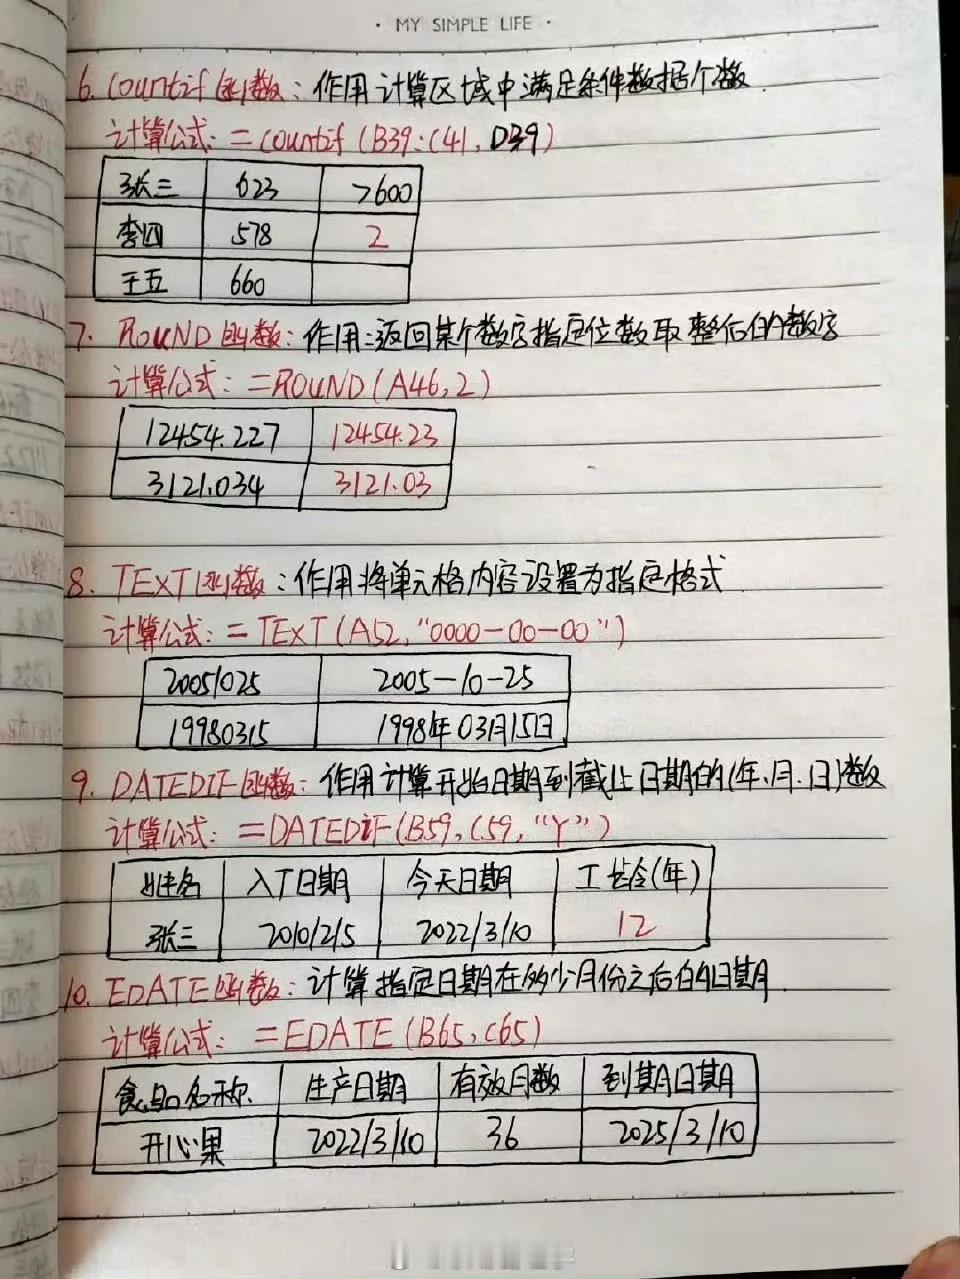 · MY SIMPLE LIFE ·
6. Countif函数：作用计算区域中满足条件数据个数
计算公式：=Countif(B39:C41, D39)
张三 623 >600
李四 578 2
王五 660
7. ROUND函数：作用：返回某个数字指定位数取整后的数字
计算公式：=ROUND(A46,2)
12454.227 12454.23
3121.034 3121.03
8. TEXT函数：作用将单元格内容设置为指定格式
计算公式：=TEXT(A52,"0000-00-00")
20051025 2005-10-25
19980315 1998年03月15日
9. DATEDIF函数：作用计算开始日期到截止日期的(年、月、日)数
计算公式：=DATEDIF(B59,C59,"Y")
姓名 入丁日期 今天日期 工龄(年)
张三 2010/2/5 2022/3/10 12
10. EDATE函数：计算指定日期在多少月份之后的日期
计算公式：=EDATE(B65,C65)
食品名称 生产日期 有效月数 到期日期
开心果 2022/3/10 36 2025/3/10